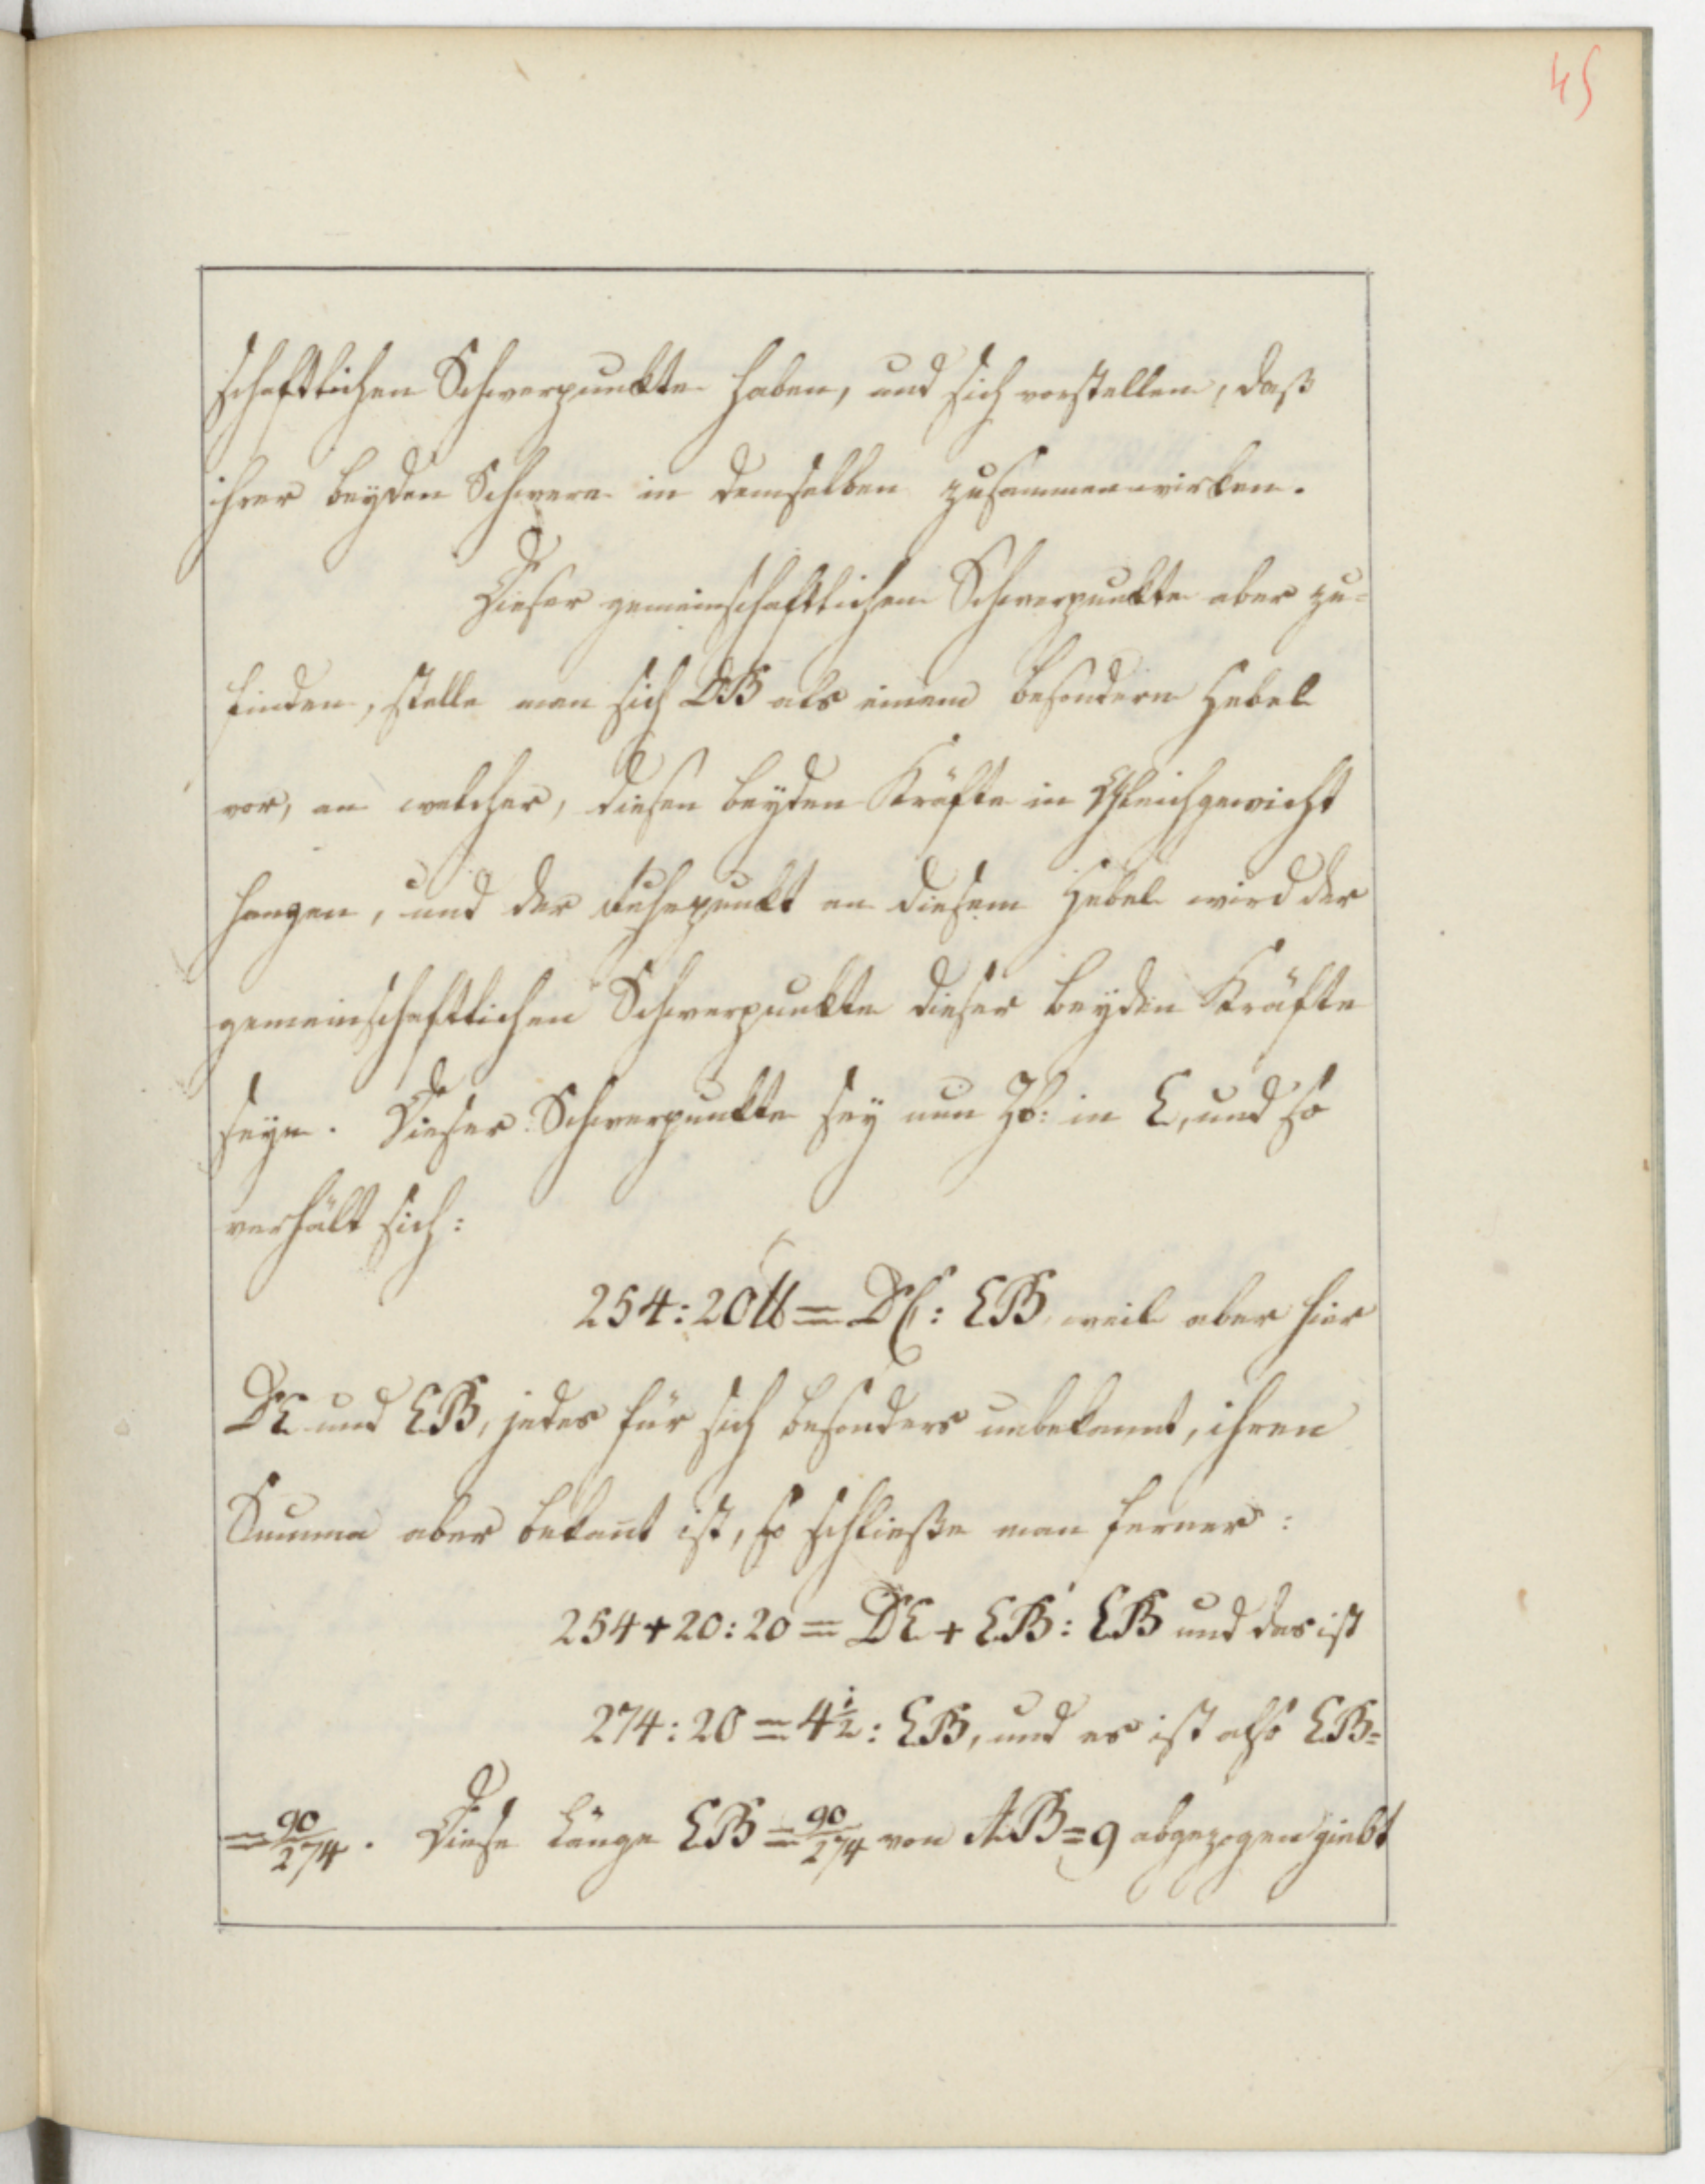 45
schaftlichen Schwerpunkte haben, und sich vorstellen, daß
ihrer beyden Schwere in demselben zusammenwirken.
Dieser gemeinschaftlichen Schwerpunkte aber zu=
finden, stelle man sich DB als einem besondern Hebel
vor, an welcher, diesen beyden Kräfte in Gleichgewicht
hangen, und der Ruhepunkt an diesem Hebel wird der
gemeinschaftlichen Schwerpunkte dieser beyden Kräfte
seyn. Dieser Schwerpunkte sey nun Zb: in E, und so
verhält sich:
254:20 ℔ = DE: EB, weil aber hier
DE und EB, jedes für sich besonders unbekannt, ihren
Summa aber bekañt ist, so schließe man ferner:
254+20:20 = DE + EB: EB und das ist
274:20 = 4½: EB, und es ist also EB=
= 90/274. Diese Länge EB = 90/274 von AB = 9 abgezogen giebt